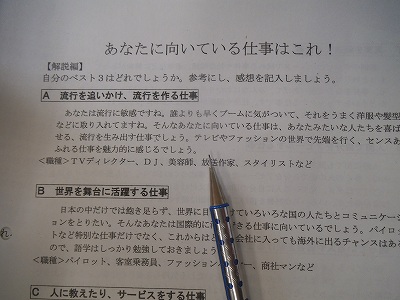 あなたに向いている仕事はこれ！
【解説編】
自分のベスト３はどれでしょうか。参考にし、感想を記入しましょう。
A 流行を追いかけ、流行を作る仕事
あなたは流行に敏感ですね。誰よりも早くブームに気がついて、それをうまく洋服や髪型
などに取り入れてますね。そんなあなたに向いている仕事は、あなたみたいな人たちを喜ば
せる、流行を生み出す仕事でしょう。テレビやファッションの世界で先端を行く、センスあ
ふれる仕事を魅力的に感じるでしょう。
＜職種＞ＴＶディレクター、ＤＪ、美容師、放送作家、スタイリストなど
B 世界を舞台に活躍する仕事
日本の中だけでは飽き足らず、世界に目 けていろいろな国の人たちとコミュニケー
ションをとりたい。そんなあなたは国際的に できる仕事に向いているでしょう。パイロ
ットなど特別な仕事だけでなく、これからは 会社に入っても海外に出るチャンスはあ
ので、語学はしっかり勉強しておきましょう
＜職種＞パイロット、客室乗務員、ファッション ー、商社マンなど
C 人に教えたり、サービスをする仕事